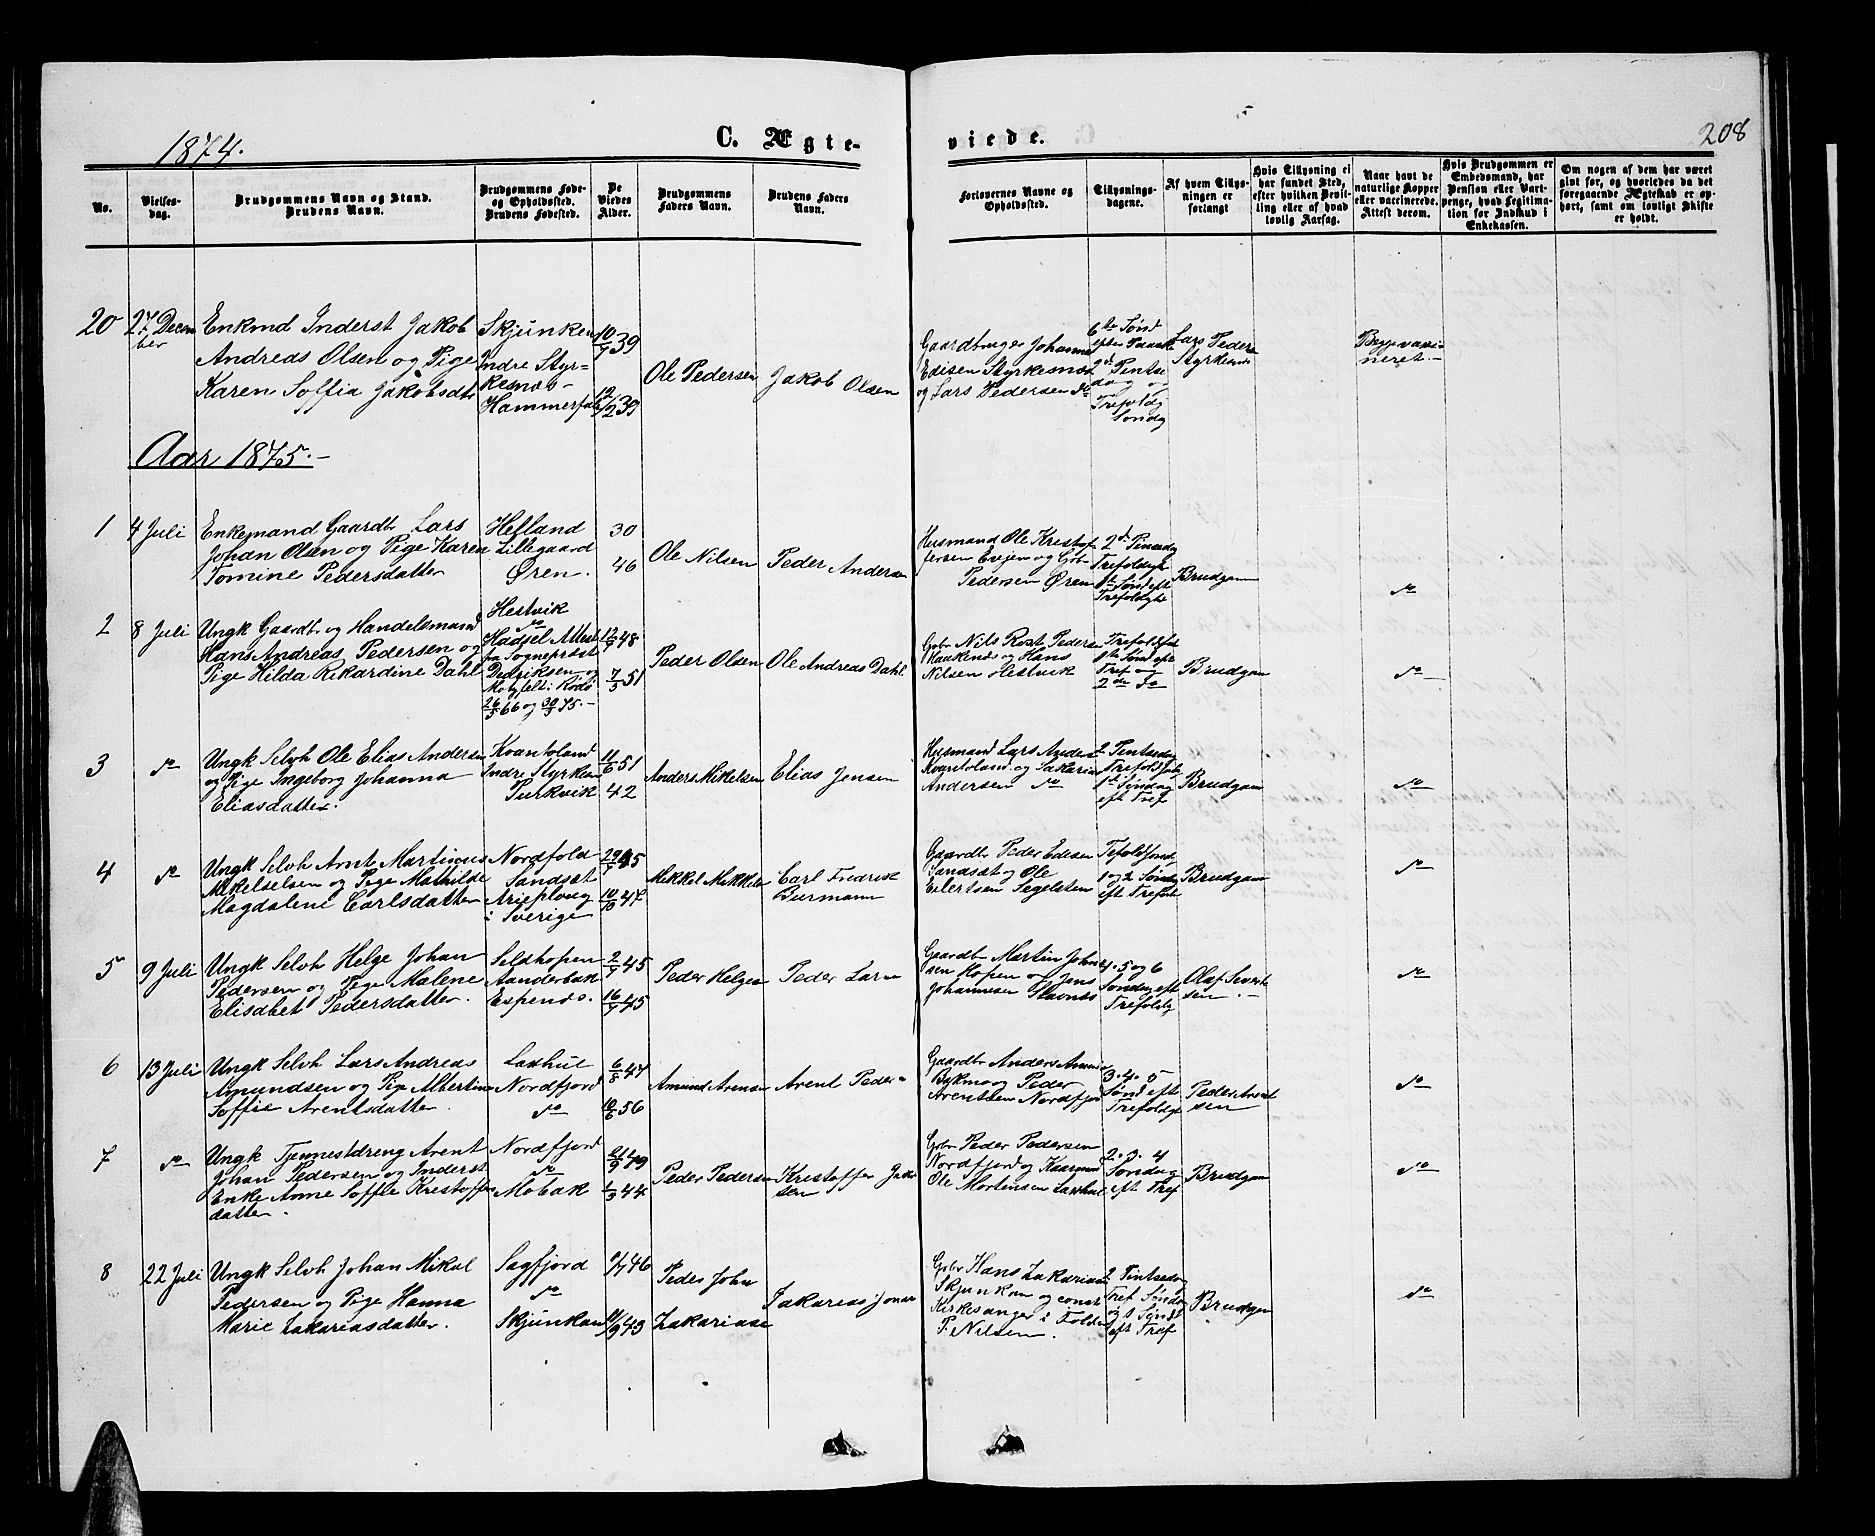 1874.
C. Ægte-
viede.
208
No.
Vielses-
dag.
Brudgommens Navn og Stand.
Brudens Navn.
Brudgommens Føde-
og Opholdssted.
Brudens Fødested.
De
Viedes
Alder.
Brudgommens
Faders Navn.
Brudens Faders
Navn.
Forlovernes Navne og
Opholdssted.
Tillysnings-
dagene.
Af hvem Tillys-
ningen er
forlangt
Hvis Tillysning ei
har fundet Sted,
efter hvilken Bevil-
ling eller af hvad
lovlig Aarsag.
Naar havt de
naturlige Kopper
eller vaccinerede.
Attest derom.
Hvis Brudgommen er
Embedsmand, har
Pension eller Vart-
penge, hvad Legitima-
tion for Indskud i
Enkekassen.
Om nogen af dem har været
gift før, og hvorledes da det
foregaaende Ægteskab er op-
hørt, samt om lovligt Skifte
er holdt.
20
27 Decem
ber
Enkmd Inderst Jakob
Andreas Olsen og Pige
Karen Soffia Jakobsdtr
Skjunken
Indre Styr=
kesnes-
Hammerfest
10/7 39
12/2 39
Ole Pedersen
Jakob Olsen
Gaardbruger Johannes
Edisen Styrkesnæs
og Lars Pedersen do
6te Sønd
efter Paaske
2d Pintse
dag og
Trefoldig
Søndag
Lars Peders
Styrkesnæs
Begge vacci
neret.-
Aar 1875.-
1
4 Juli
Enkemand Gaardbr Lars
Johan Olsen og Pige Karen
Tomine Pedersdatter
Hefland
Lillegaard
Øren.
30
46
Ole Nilsen
Peder Andersen
Husmand Ole Kristof
fersen Evjen og Gbr
Pedersen Øren
2d Pinsedg
Trefoldigh
1te Sønd eft
Trefoldighe
Brudgom
do
2
8 Juli
Ungk Gaardbr og Handelsmand
Hans Andreas Pedersen og
Pige Hilda Rikardine Dahl
Hestvik
do
Hadsel Attest
fra Sogneprest
Dedriksen og
Motzfelt i Rødø
26/5 66 og 30/3 75.-
12/7 48
7/5 51
Peder Olsen
Ole Andreas Dahl
Gbr Nils Rost Peders
Haukenæs og Hans
Nilsen Hestvik
Trefoldfest
1te Sønd eft
Tref og
2den do
Brudgom
do
3
do
Ungk Selvh Ole Elias Andersen
og Pige Ingeborg Johanna
Eliasdatter.
Kvantoland
Indre Styrkesn
Purkvik
11/6 51
42
Anders Mikelsen
Elias Jensen
Husmand Lars Anders
Kvantoland og Sakarias
Andersen do
2 Pintsedag
Trefoldfest
1te Søndag
eft Tref
Brudgom
do
4
do
Ungk Selvh Arnt Martinus
Mikelsen og Pige Mathilde
Magdalene Carlsdatter
Nordfold
Sandsæt
Arieploug
i Sverige
29/7 45
10/10 47
Mikkel Mikkelsen
Carl Fredrik
Burmann
Gaardbr Peder Edisen
Sandsæt og Ole
Eilertsen Segelsten
Trefoldsønd
1 og 2 Sønda
eft Trefold
Brudgom
do
5
9 Juli
Ungk Selvh Helge Johan
Pedersen og Pige Malene
Elisabet Pedersdatter.
Selshopen
Aanderbak
Espenæs.
2/7 45
16/7 45
Peder Helgesen
Peder Larsen
Gaardbr Martin John
sen Hopen og Jens
Johannesen Glavnæs
4. 5 og 6
Søndag eft
Trefoldig
Olaf Sivert
sen.-
do
6
13 Juli
Ungk Selvh Lars Andreas
Amundsen og Pige Albertine
Soffie Arentsdatter.
Laxhul
Nordfjord
do
6/8 47
10/6 56
Amund Arensen
Arent Peder=
Gaardbr Anders Amun
Bykmo og Peder
Arentsen Nordfjord
3. 4. 5
Sønd eft
Trefoldigh
Peder Arent
sen
do
7
do
Ungk Tjenestdreng Arent
Johan Pedersen og Inderst
Enke Anne Soffie Kristoffers
datter.
Nordfjord
do
Mobak
21/9 49
1/3 44
Peder Pedersen
Kristoffer Jako
sen
Gbr Peder Pedersen
Nordfjord og Kaarmd
Ole Mortensen Laxhul
2. 3. 4
Søndag
eft Tref
Brudgom
do
8
22 Juli
Ungk Selvh Johan Mikal
Pedersen og Pige Hanna
Marie Zakariasdatter.
Sagfjord
do
Skjunkan
8/7 46
11/9 43
Peder John
Zakariase
Sakarias Jonas
Gbr Hans Zakariase
Skjunkan og const
Kirkesanger i Folden
P. Nilsen.
2 Pintsedag
Tref Søndag
og 1 Sønd
eft Tref
Brudgom
do